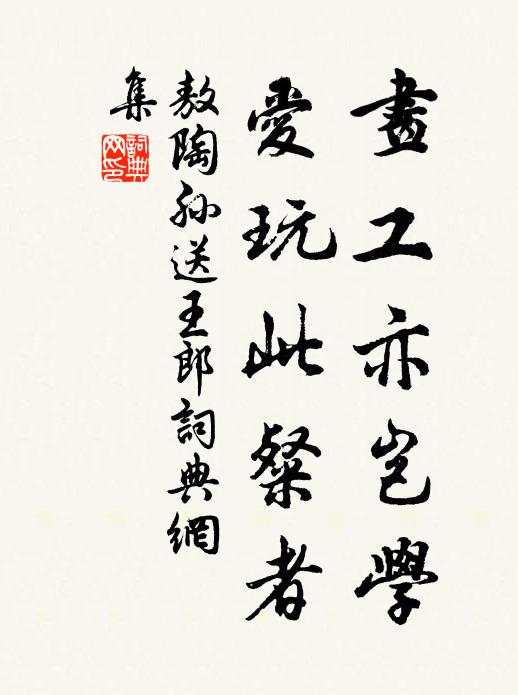 畫工亦豈學
愛玩此粲者
敖陶孫送王郎詞典網
集
詞典
网印